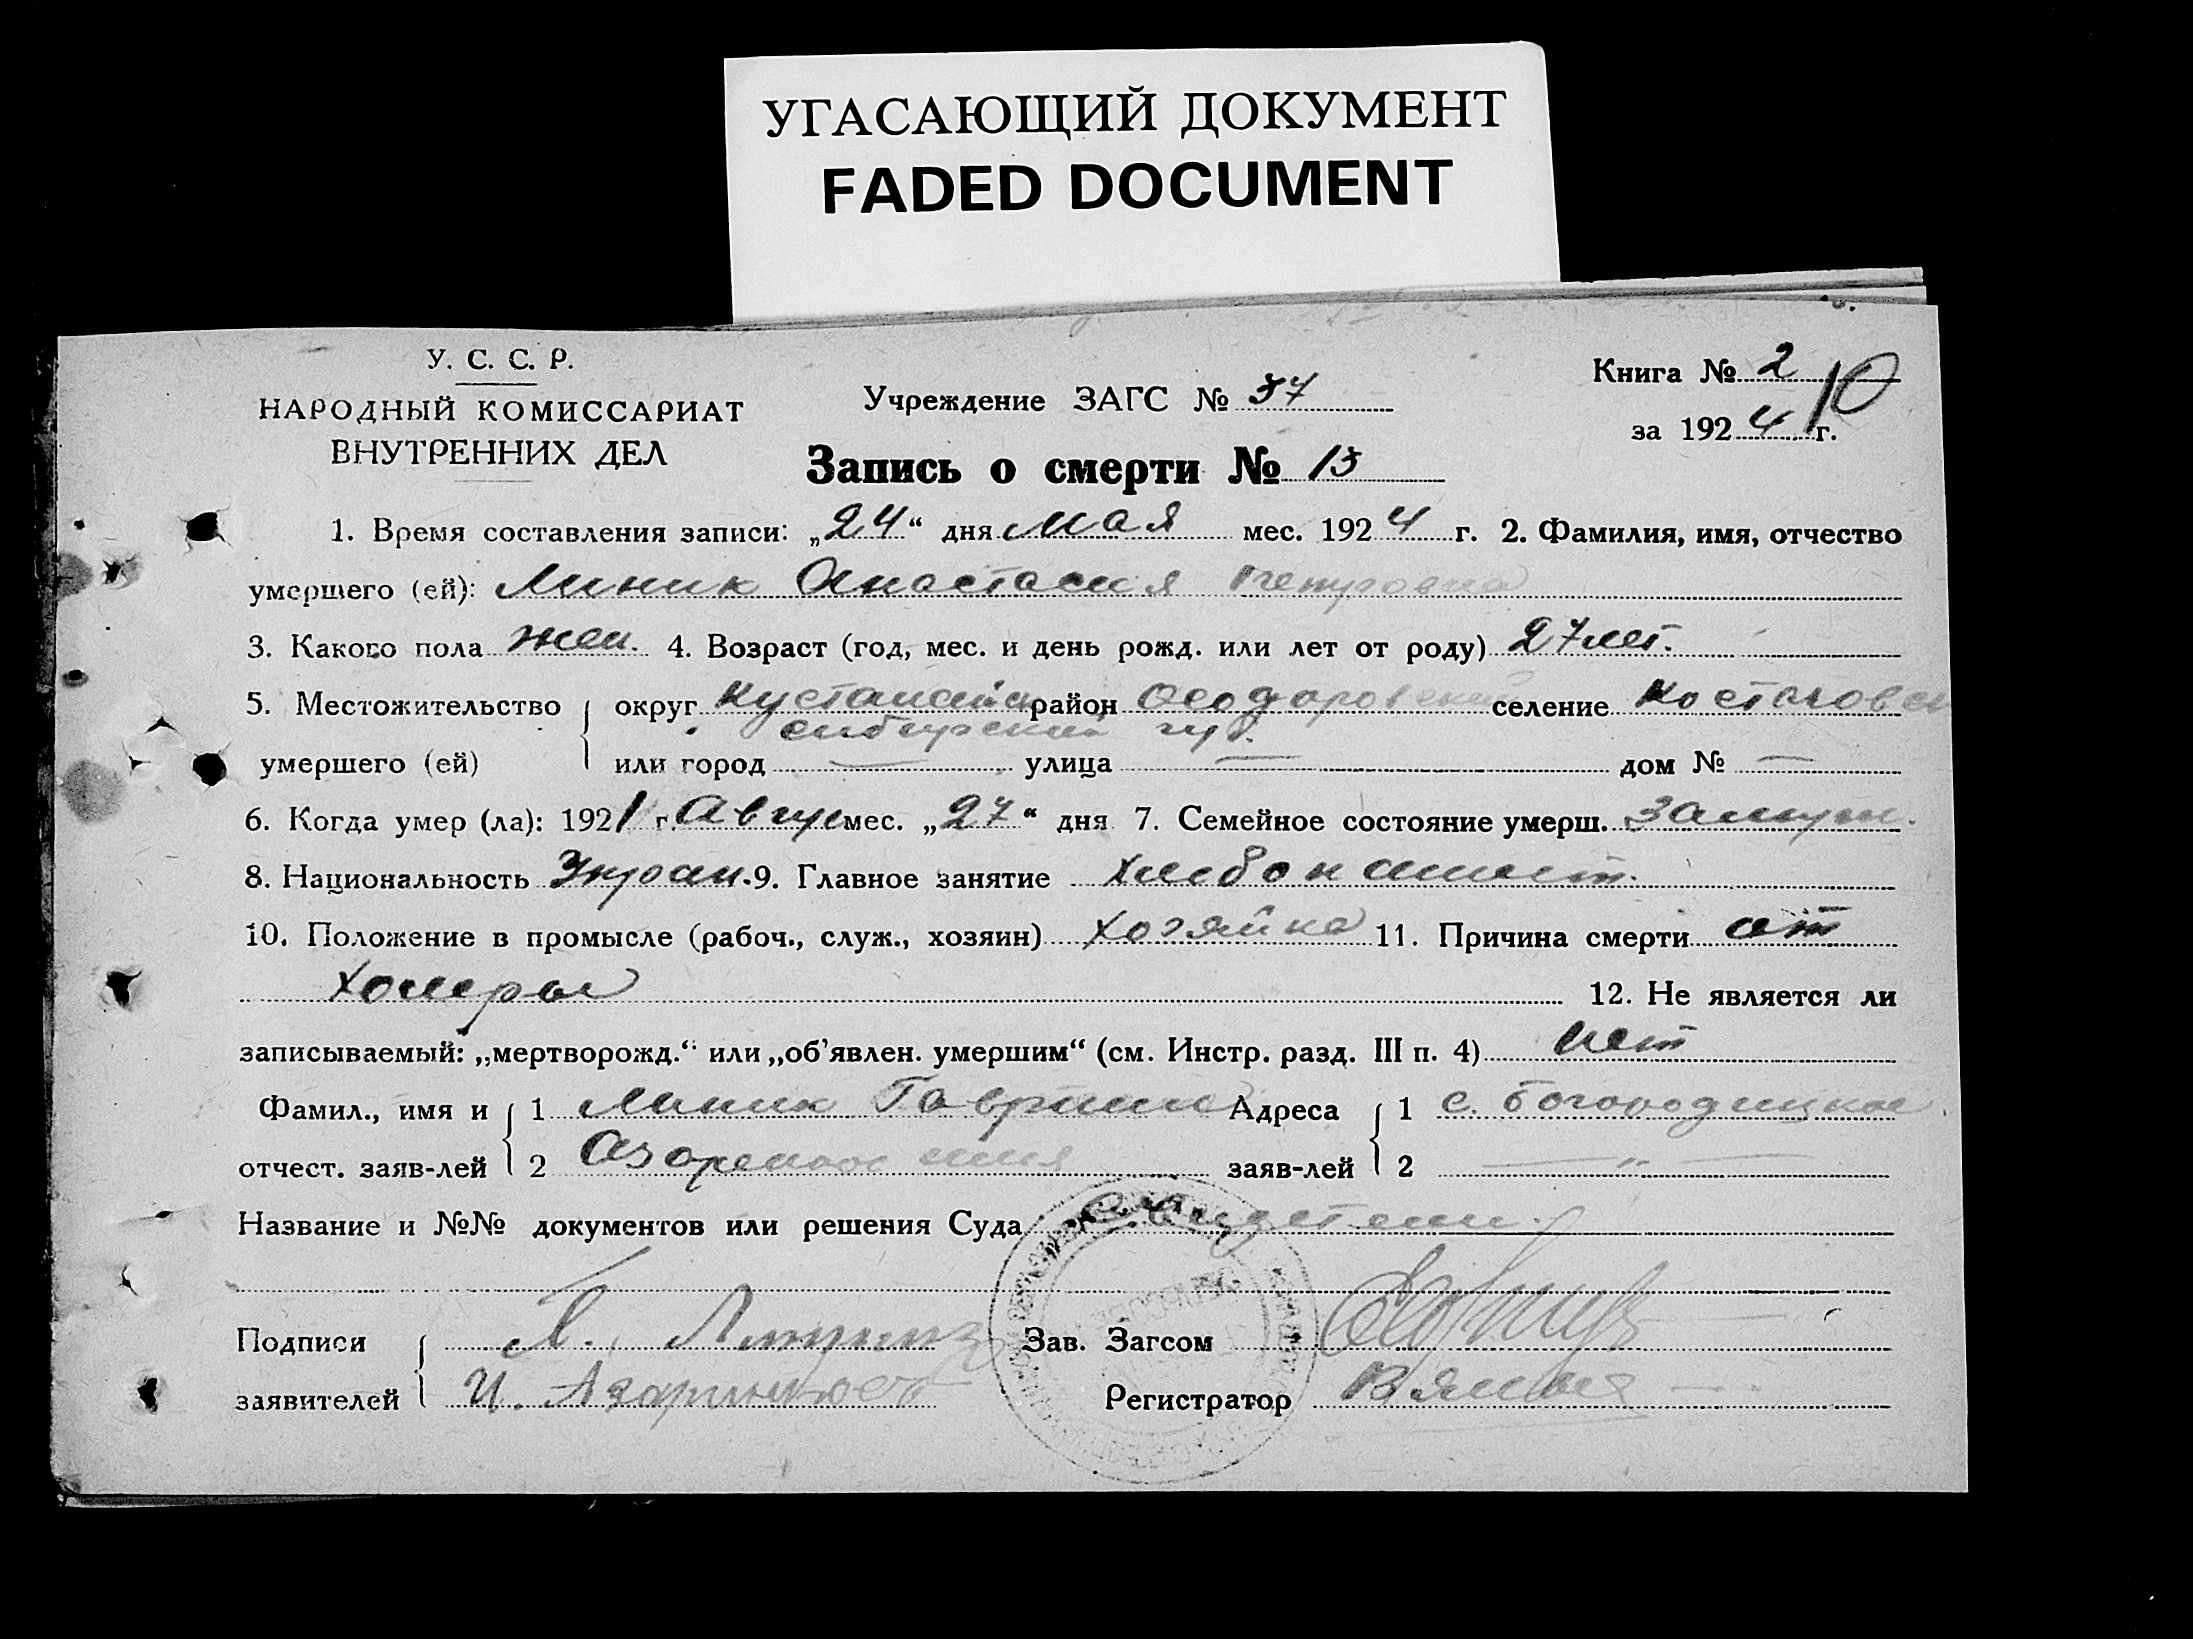 УГАСАЮЩИЙ ДОКУМЕНТ
FADED DOCUMENT
У. С. С. Р.
НАРОДНЫЙ КОМИССАРИАТ
ВНУТРЕННИХ ДЕЛ
Учреждение ЗАГС № 37
Книга № 2
10
за 1924 г.
Запись о смерти № 13
1. Время составления записи: „24“ дня Мая мес. 1924 г. 2. Фамилия, имя, отчество
умершего (ей): Линик Анастасия Петровна
3. Какого пола жен. 4. Возраст (год, мес. и день рожд. или лет от роду) 27 лет.
5. Местожительство округ Кустанайск район Феодоровский селение
сибирский гу.
умершего (ей) или город — улица — дом № —
6. Когда умер (ла): 1921 г. Авгус мес. „27“ дня 7. Семейное состояние умерш. замуж.
8. Национальность Украин. 9. Главное занятие хлебопашест.
10. Положение в промысле (рабоч., служ., хозяин) хозяйка 11. Причина смерти от
холеры 12. Не является ли
записываемый: „мертворожд.“ или „об’явлен. умершим“ (см. Инстр. разд. III п. 4) нет
Фамил., имя и 1 Линик Гаврило Адреса 1 с. Богородицкое
отчест. заяв-лей 2 заяв-лей 2 — „ —
Название и №№ документов или решения Суда Свидетели.
Подписи Линник Зав. Загсом
заявителей И. Регистратор